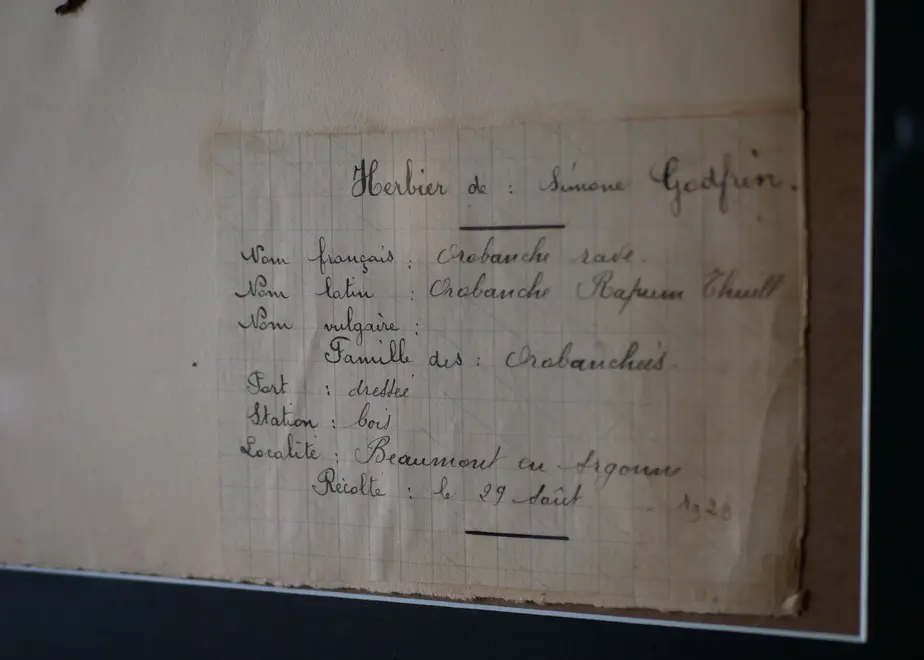 Herbier de : Simone Godfrin.
Nom français : Orobanche rave.
Nom latin : Orobanche Rapum Thuill
Nom vulgaire :
Famille des : Orobanchées.
Port : dressée
Station : bois
Localité : Beaumont en Argonne
Récolte : le 29 Août 1920